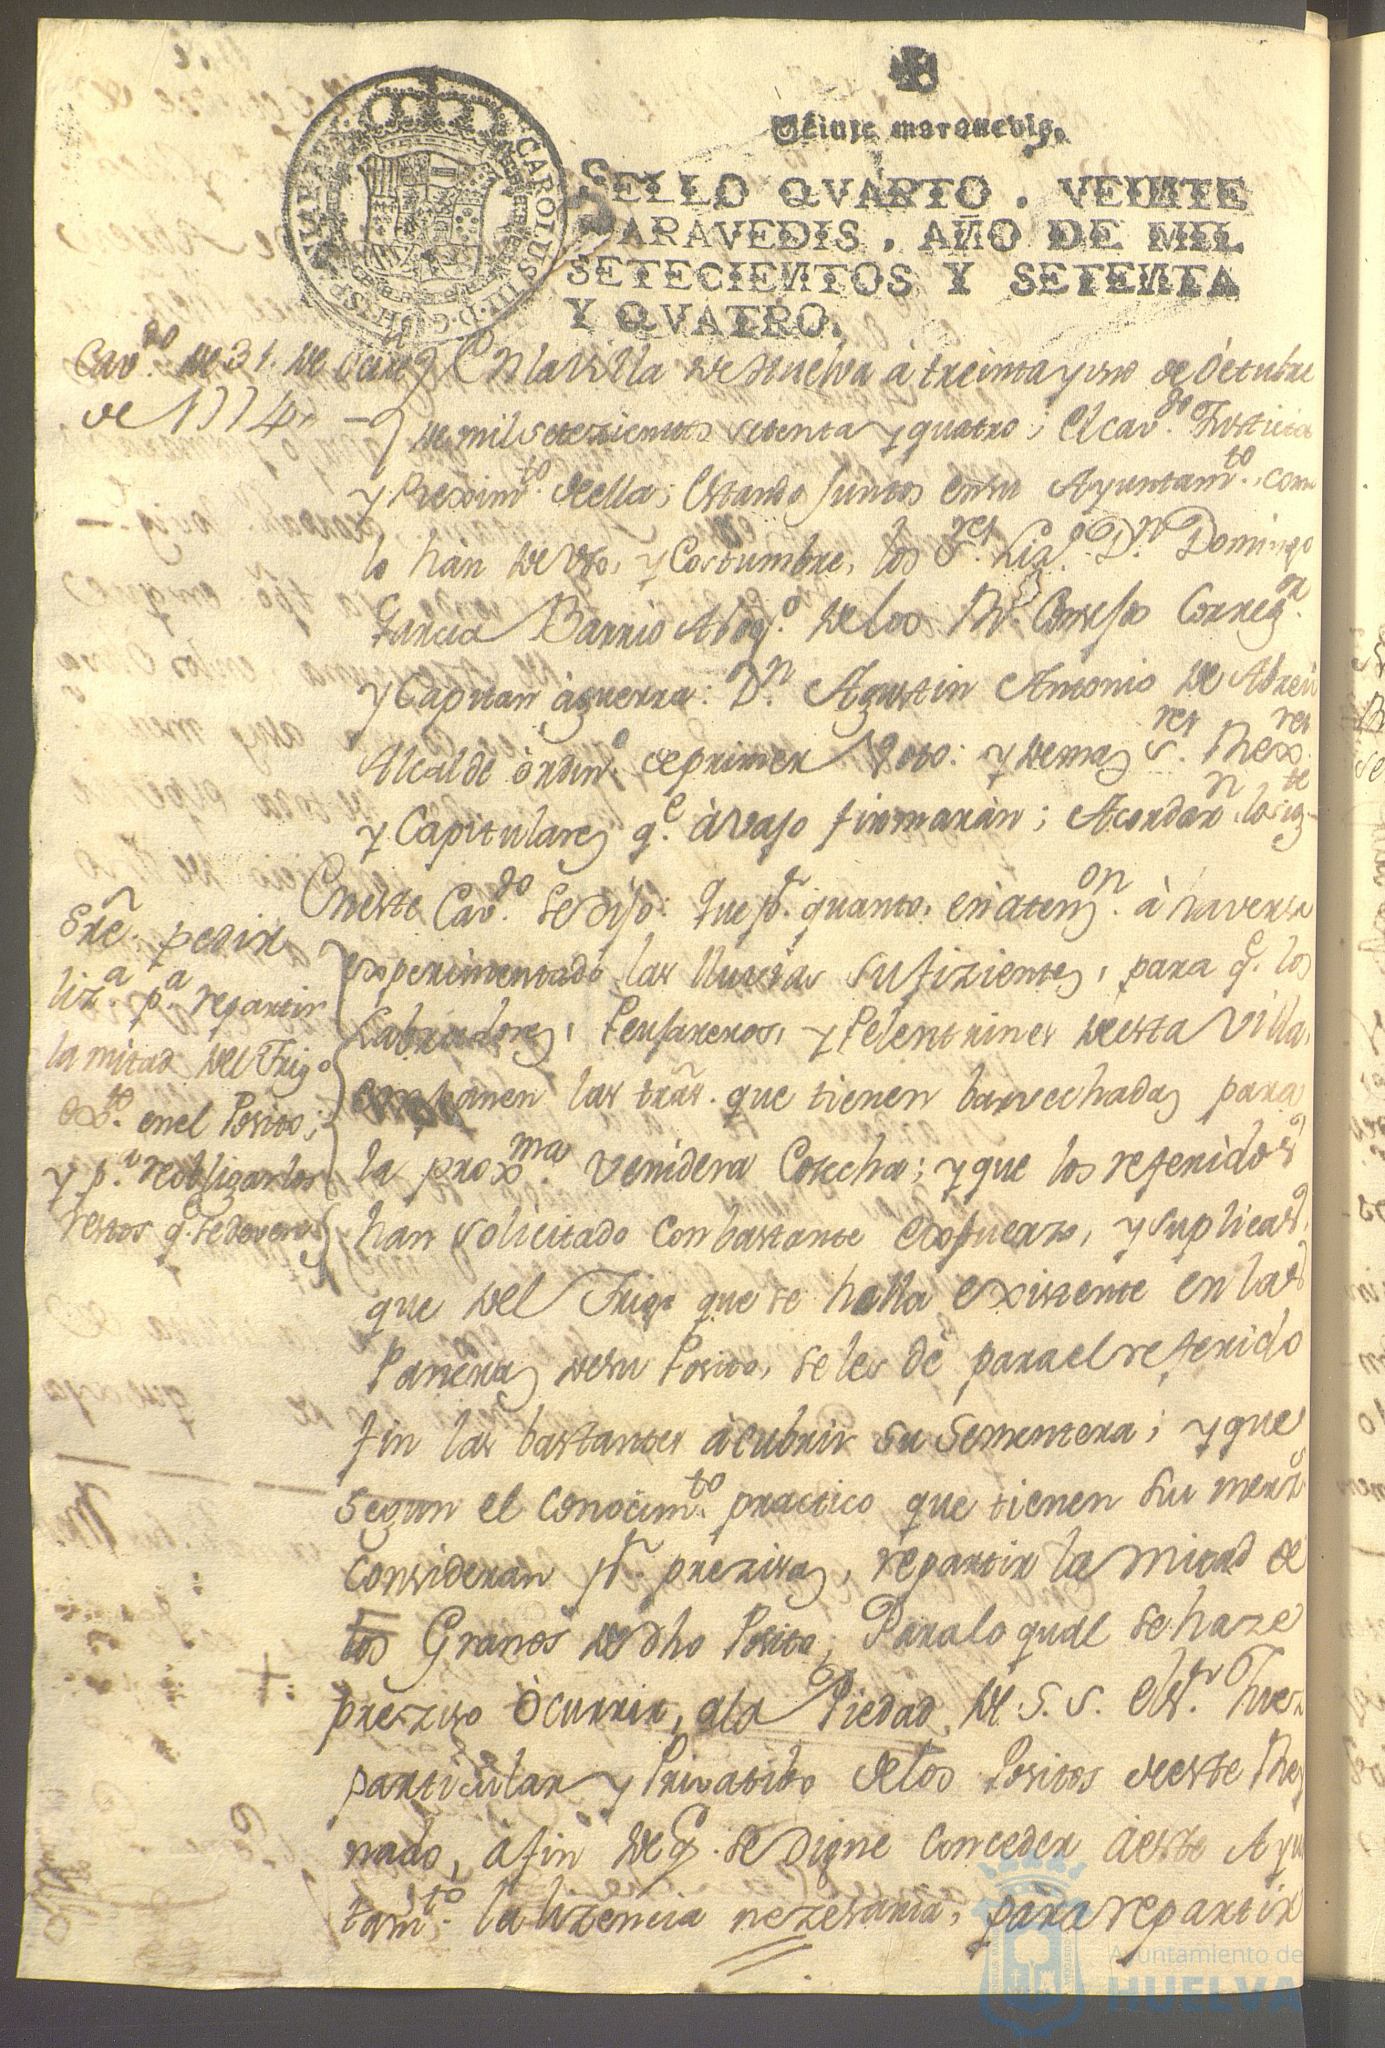 Veinte maravedis.
SELLO QVARTO. VEINTE
MARAVEDIS, AÑO DE MIL
SETECIENTOS Y SETENTA
Y QVATRO.
CAROLUS III D. G. HISP
Cav.do de 31. de Octre
de 1774.
En la Villa de Huelva á treinta y uno de Octubre
de mil setezientos setenta y quatro; el Cav.do Justicia
y Reximto. de ella; estando juntos en su Ayuntamto. como
lo hán de uso, y Costumbre, los Sres. Lizdo. Dn. Domingo
Garcia Barrio Abogdo. de los Rs. Consejos Corregor.
y Capitan àguerra: Dn. Agustin Antonio de Abreu
Alcalde òrdino. de primer Voto: y demas Sres. Rexres.
y Capitulares qe. àvajo firmaràn; Acordarn. lo sigte
Sre. pedir
liza. pa. repartir
la mitad del Trigo
exte. en el Posito;
y pa. reobligar los
restos q. se deven
En este Cavdo. se dijo: que pr. quanto, en àtenzon. à haverse
experimentado las lluvias sufizientes, para qe. los
Labradores, Peujareros, y Pelentrines de esta Villa,
empanen las trãs. que tienen barvechadas para
la proxma. venidera Cosecha; y que los referidos
han solicitado con bastante expfuerzo, y suplicas,
que del Trigo que se halla existente en las
Paneras de su Posito, se les dè para el referido
fin las bastantes àcubrir su Sementera; y que
segun el conocimto. practico que tienen sus merzs
consideran pr. prezisa, repartir la mitad de
los Granos de dho Posito; Para lo qual se haze
prezizo òcurrir, a la Piedad de S. S. el Sr. Juez
particular y Privatibo de los Positos de este Rey
nado, à fin de q. se digne conceder à este Ayun
tamto. la lizencia nezesaria, para repartir
Ayuntamiento de
HUELVA